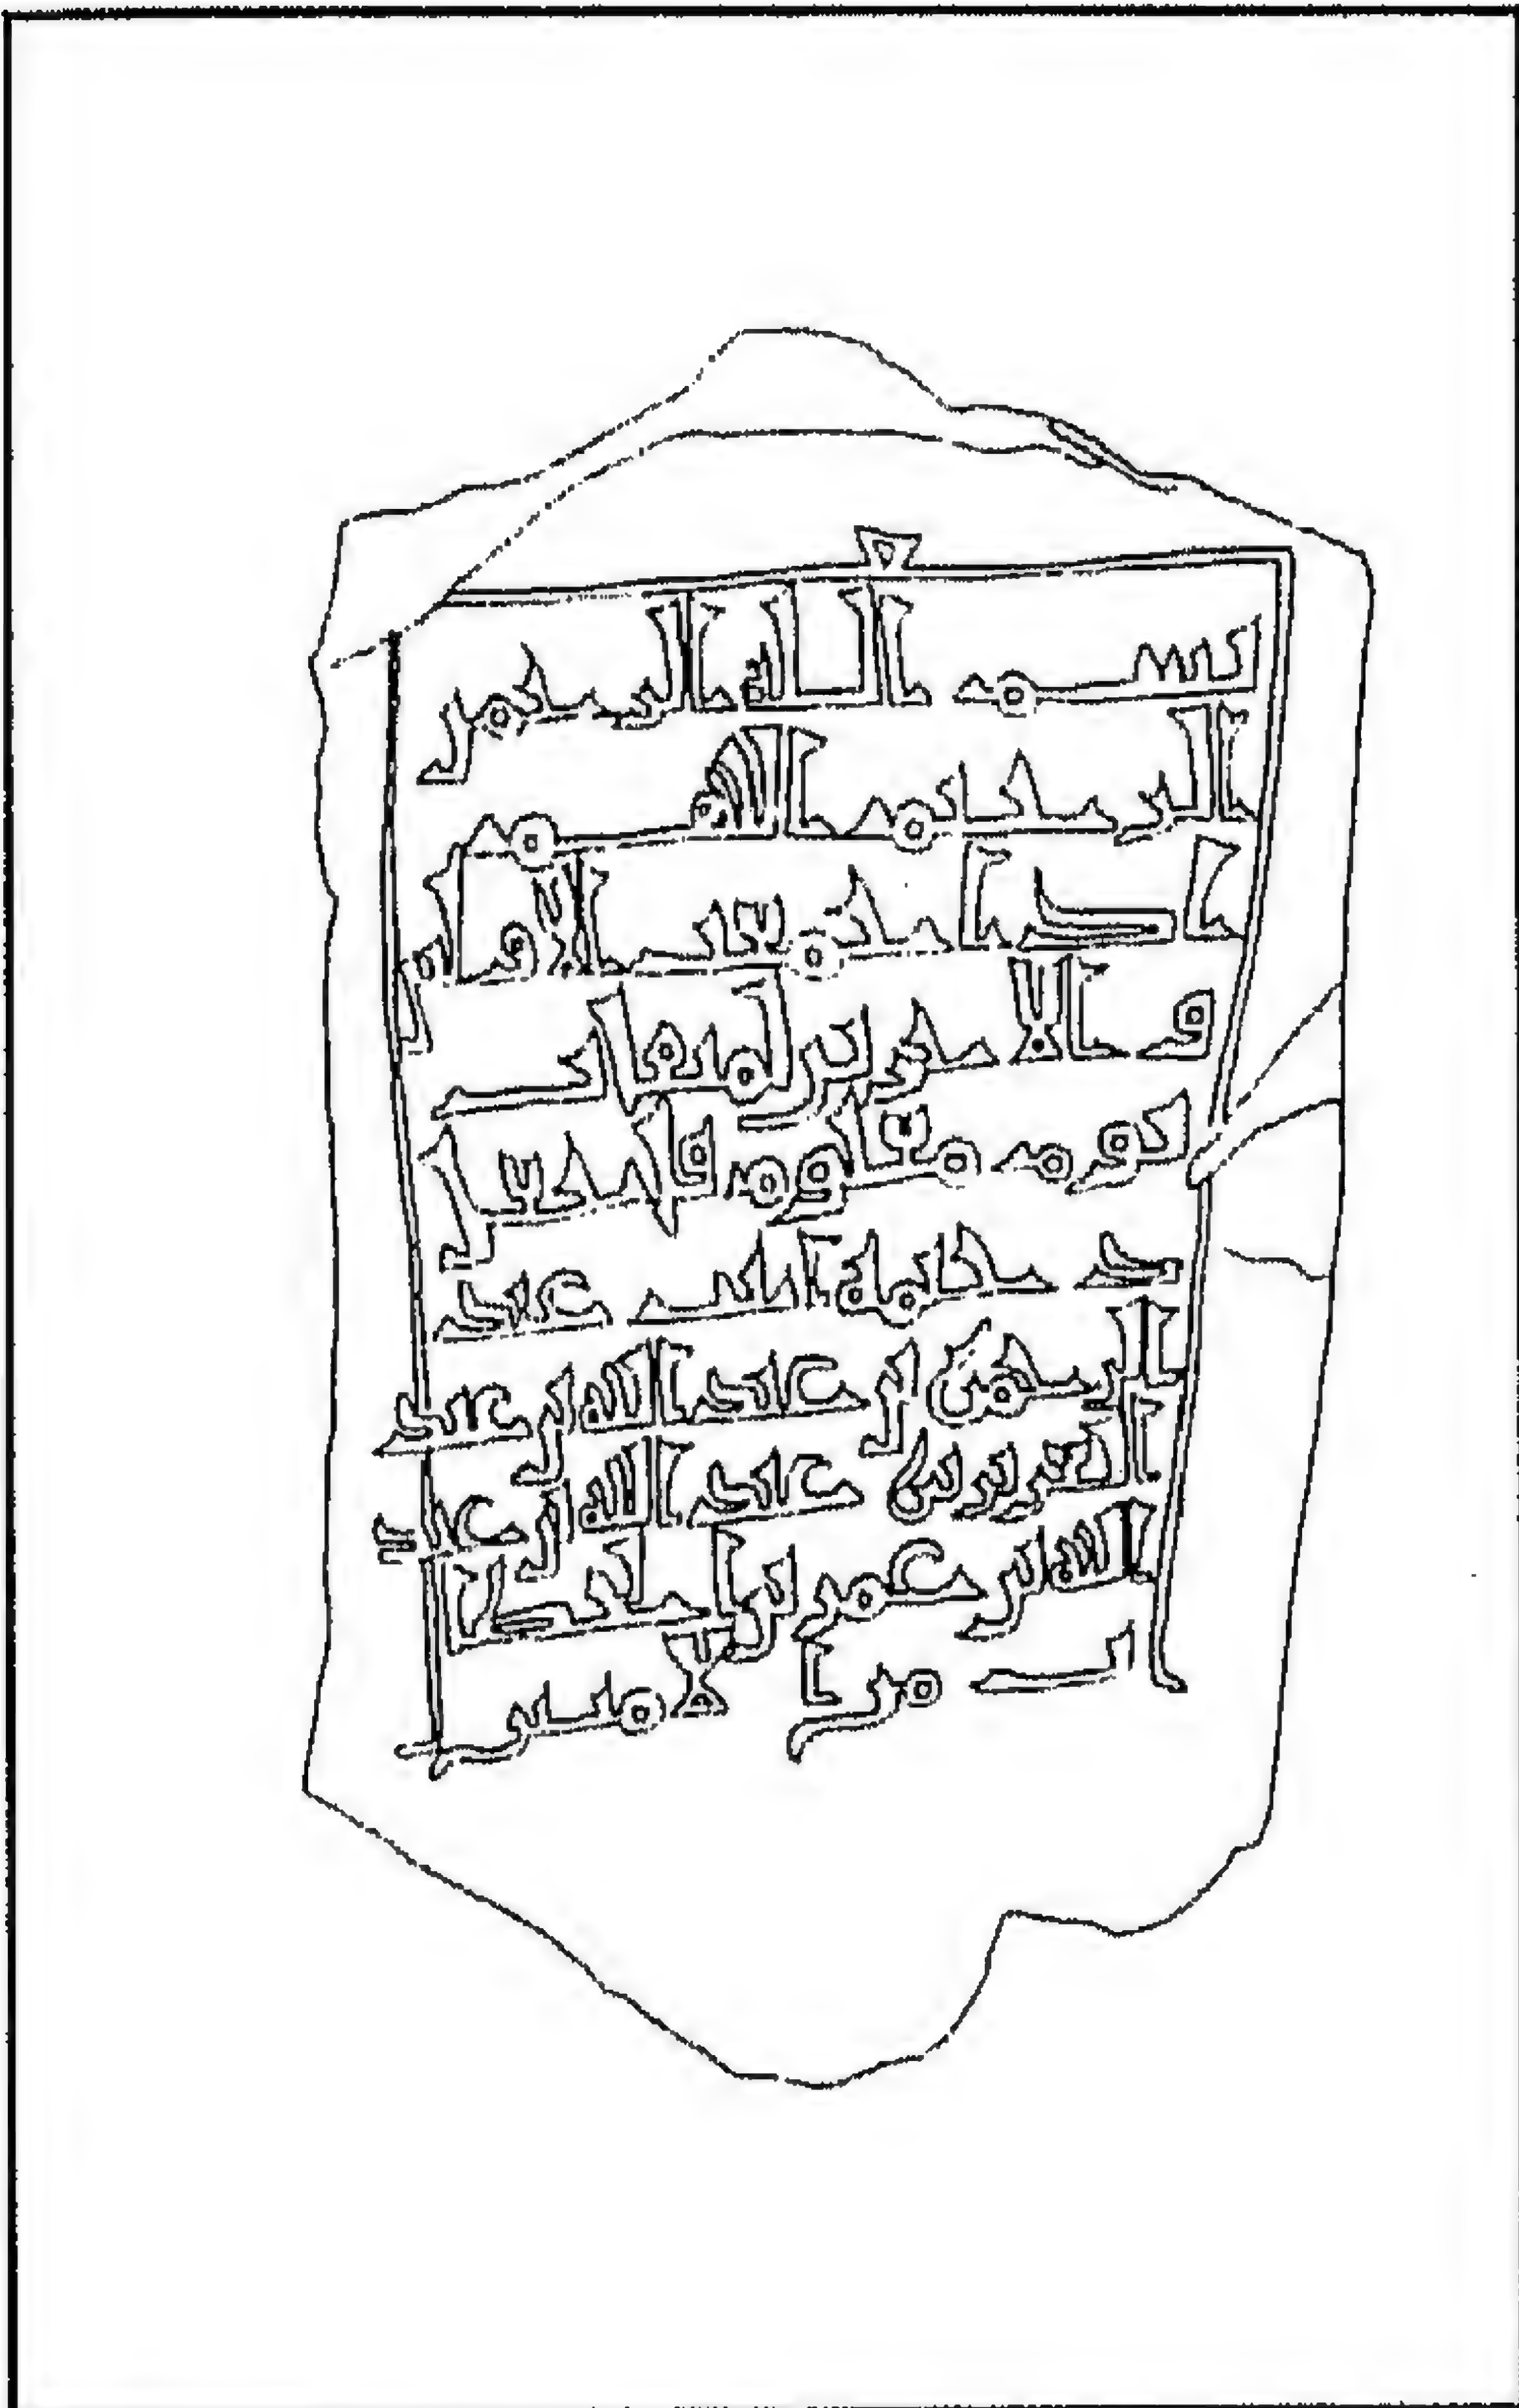 بسم الله الرحمن
الرحيم اللهم
اذا جمعت الاولين
و الاخرين لميقات
يوم معلوم فاجعل
ابنت عبد
الرحمن بن عبد الله بن عبد
العزيز بن عبد الله بن عبد
الله بن عمر بن الخطا
ب من الامنين